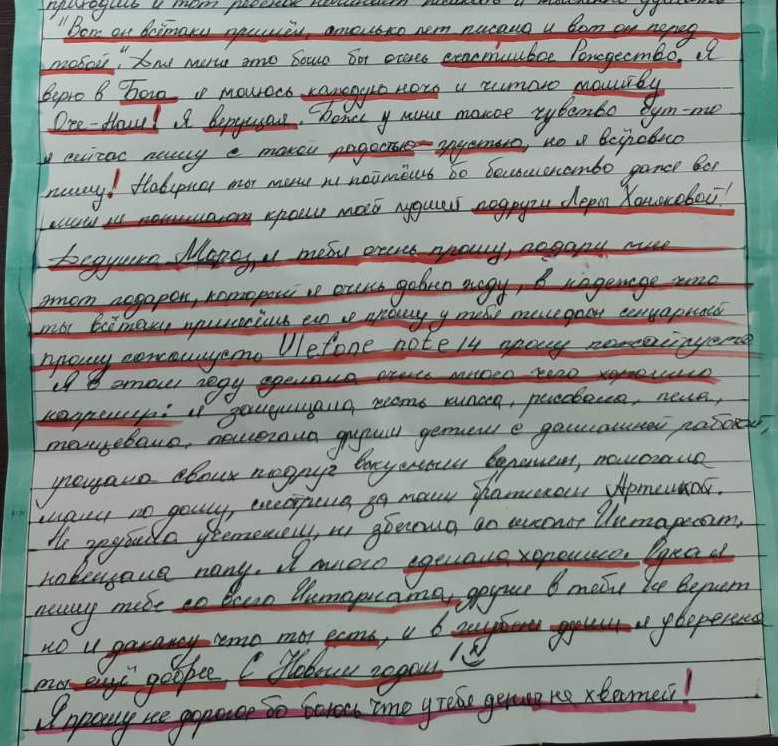 приходишь и тот ребёнок начинает
"Вот он всётаки пришёл, столько лет писала и вот он перед
тобой". Для меня это было бы очень счастливое Рождество. Я
верю в Бога я молюсь каждую ночь и читаю молитву
Оче-Наш! Я верущая. Боже у меня такое чувство бут-то
я сейчас пишу с такой радостью-грустью, но я всёровно
пишу! Наверное ты меня не поймёшь бо большенство даже все
меня не понимают кроме моей лудшей подруги Леры Хоняковой!
Дедушка Мороз, я тебя очень прошу, подари мне
этот подарок, который я очень давно жду, в надежде что
ты всётаки принесёшь его я прошу у тебя теледон сенцарный
прошу пожалуусто Ulefone note 14 прошу пожайлуусто
Я в этом году сделала очень много чего хорошего
например: я защищала честь класса, рисовала, пела,
танцевала, помогала другим детям с домашней работой,
угощала своих подруг вкусным варенем, помогала
маме по дому, смотрела за моим братиком Артемкой.
Не грубила учетелям, не збегала со школы Интарнат,
навещала папу. Я много сделала хорошего. Одна я
пишу тебе со всего Интарната, другие в тебя не верят
но я дакажу что ты есть, и в глубене души я уверенна
ты ещё добрее С Новым годом !
Я прошу не дорогое бо боюсь что у тебя денег не хватей!